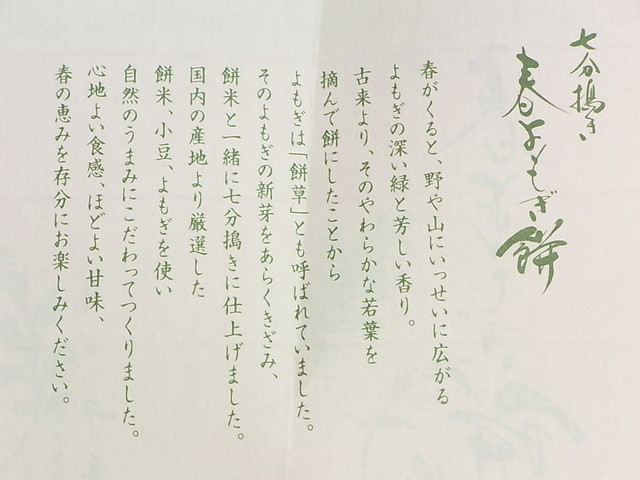 七分搗き
春よもぎ餅
春がくると、野や山にいっせいに広がる
よもぎの深い緑と芳しい香り。
古来より、そのやわらかな若葉を
摘んで餅にしたことから
よもぎは「餅草」とも呼ばれていました。
そのよもぎの新芽をあらくきざみ、
餅米と一緒に七分搗きに仕上げました。
国内の産地より厳選した
餅米、小豆、よもぎを使い
自然のうまみにこだわってつくりました。
心地よい食感、ほどよい甘味、
春の恵みを存分にお楽しみください。